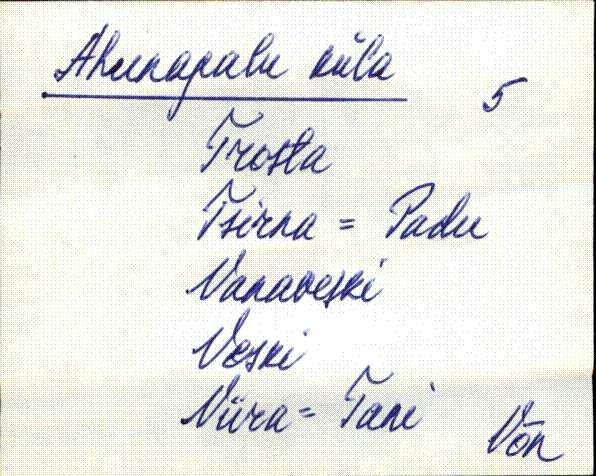 Ahunapalu küla
5
Trosta
Tsirna = Padu
Vanaveski
Veski
Viira = Tani
Võn